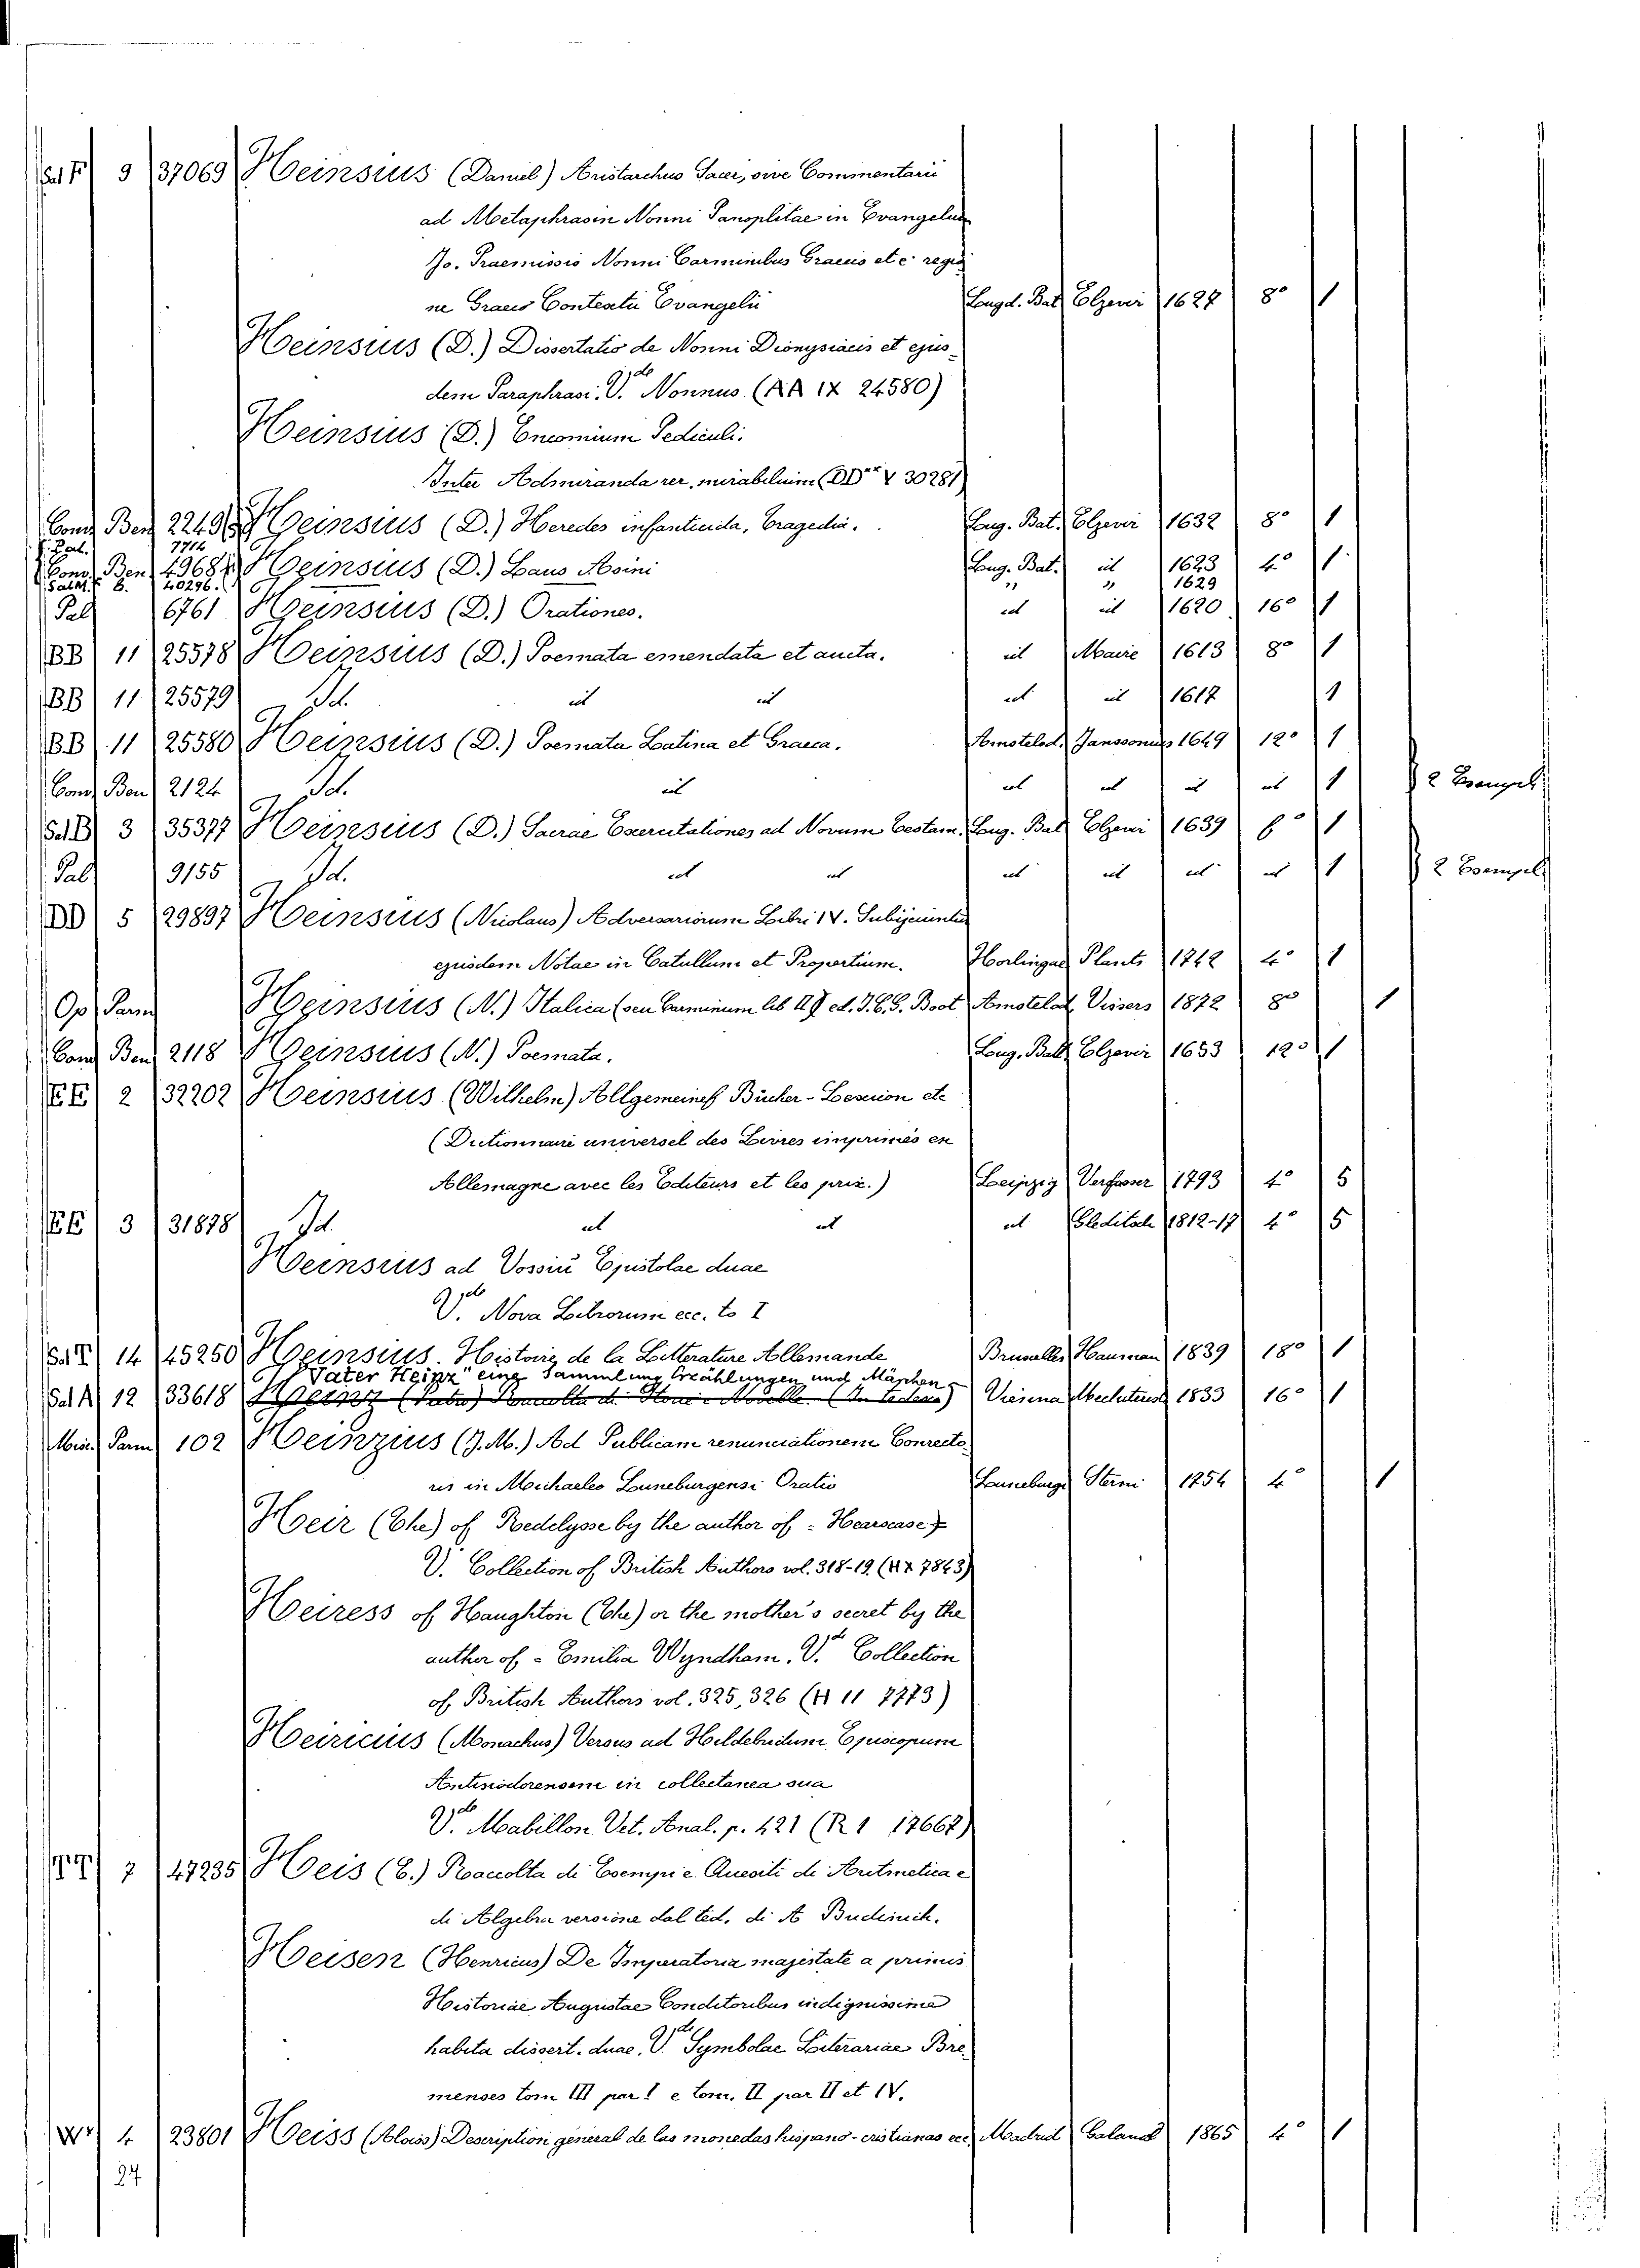 Sal F 9 37069 Heinsius (Daniel) Aristarchus Sacer, sive Commentarii
ad Metaphrasin Nonni Panoplitae in Evangelium
Jo. Praemissis Nonni Carminibus Graecis et e regio
ne Graeco Contextu Evangelii Lugd. Bat. Elzeviri 1627 8° 1
Heinsius (D.) Dissertatio de Nonni Dionysiacis et ejus-
dem Paraphrasi. V.de Nonnus (AA IX 24580)
Heinsius (D.) Encomium Pediculi.
Inter Admiranda rer. mirabilium (DD V 30281)
Cons Ben 2249 Heinsius (D.) Herodes infanticida, Tragedia. Lug. Bat. Elzevir 1632 8° 1
F. Pal. 7714
Cons Ben 4968 Heinsius (D.) Laus Asini Lug. Bat. id 1623 4° 1
Sal M. 8. 40296. " " 1629
Pal 6761 Heinsius (D.) Orationes. id id 1620 16° 1
BB 11 25578 Heinsius (D.) Poemata emendata et aucta. id Maire 1613 8° 1
BB 11 25579 Id. id id id id 1617 1
BB 11 25580 Heinsius (D.) Poemata Latina et Graeca. Amstelod. Janssonius 1649 12° 1
Cons Ben 2124 Id. id id id id id 1 2 Esempl.
Sal B 3 35377 Heinsius (D.) Sacrae Exercitationes ad Novum Testam. Lug. Bat Elzevi 1639 f° 1
Pal 9155 Id. id id id id id id 1 2 Esempl.
DD 5 29897 Heinsius (Nicolaus) Adversariorum Libri IV. Subijciuntur
ejusdem Notae in Catullum et Propertium. Harlingae Plants 1742 4° 1
Op Parm Heinsius (N.) Italica (seu Carminum lib II) ed. J. C. G. Boot Amstelod. Vissers 1872 8° 1
Cons Ben 2118 Heinsius (N.) Poemata. Lug. Bat Elzevir 1653 12° 1
EE 2 32202 Heinsius (Wilhelm) Allgemeines Bücher-Lexicon etc
(Dictionnaire universel des Livres imprimés en
Allemagne avec les Editeurs et les prix.) Leipzig Verfasser 1793 4° 5
EE 3 31878 Id. id id id Gleditsch 1812-17 4° 5
Heinsius ad Vossiu Epistolae duae
V.de Nova Librorum ecc. to I
Sal T 14 45250 Heinsius. Histoire de la Litterature Allemande Bruxelles Hauman 1839 18° 1
"Vater Heinz" eine Sammlung Erzählungen und Märchen
Sal A 12 33618 Heinz (Vater) Raccolta di Storie e Novelle (In tedesco) Vienna Mechitarist 1833 16° 1
Misc. Parm 102 Heinzius (J. M.) Ad Publicam renunciationem Conrecto-
ris in Michaeleo Luneburgensi Oratio Luneburge Sterni 1754 4° 1
Heir (The) of Redclysse by the author of = Hearscase =
V. Collection of British Authors vol. 318-19. (H X 7843)
Heiress of Haughton (The) or the mother's secret by the
author of = Emilia Wyndham. V.de Collection
of British Authors vol. 325, 326 (H 11 7773)
Heiricius (Monachus) Versus ad Hildebridum Episcopum
Antisiodorensem in collectanea sua
V.de Mabillon Vet. Anal. p. 421 (R 1 17667)
7 47235 Heis (E.) Raccolta di Esempi e Quesiti di Aritmetica e
di Algebra versione dal ted. di A Budinich.
Heisen (Henricus) De Imperatoria majestate a primis
Historiae Augustae Conditoribus indignissime
habita dissert. duae. V.de Symbolae Literariae Bre
menses tom III par I e tom. II par II et IV.
W 4 23801 Heiss (Aloiss) Description general de las monedas hispano-cristianas ecc. Madrid 1865 4° 1
27